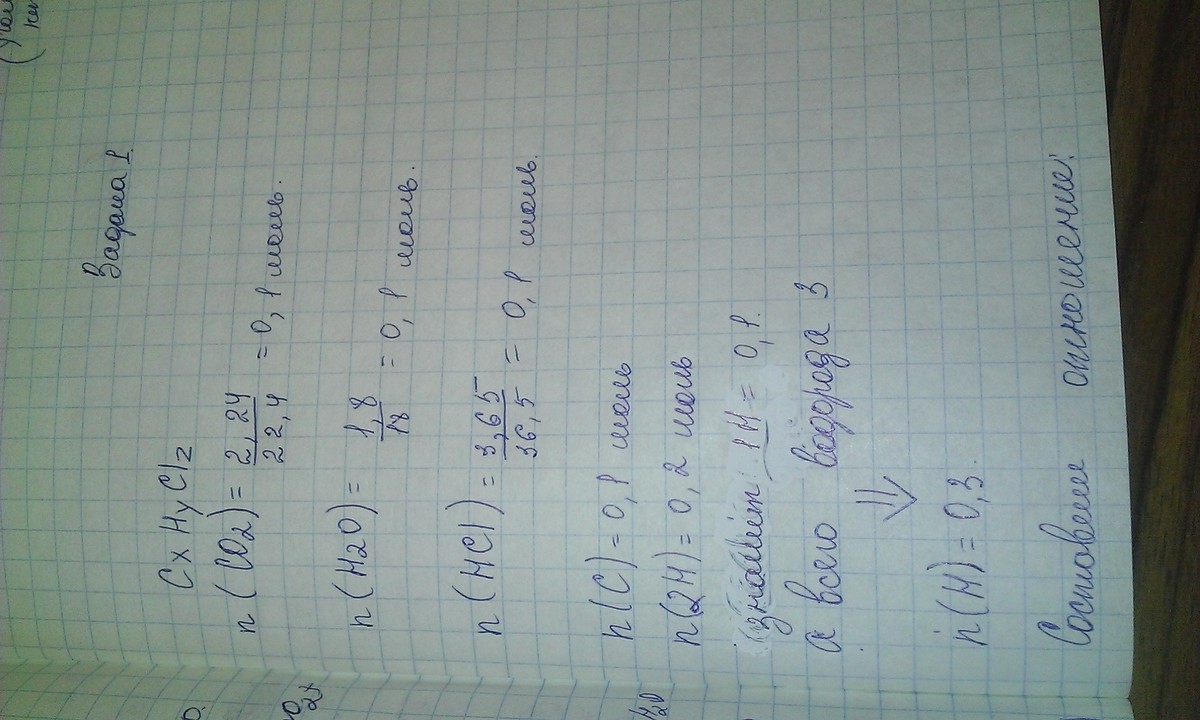 Задача 1.
CxHyClz
n(CO2) = 2,24 / 22,4 = 0,1 моль.
n(H2O) = 1,8 / 18 = 0,1 моль.
n(HCl) = 3,65 / 36,5 = 0,1 моль.
n(C) = 0,1 моль
n(2H) = 0,2 моль
(значит 1H = 0,1.
а всего водорода 3
⇓
n(H) = 0,3.
Составляем отношение: